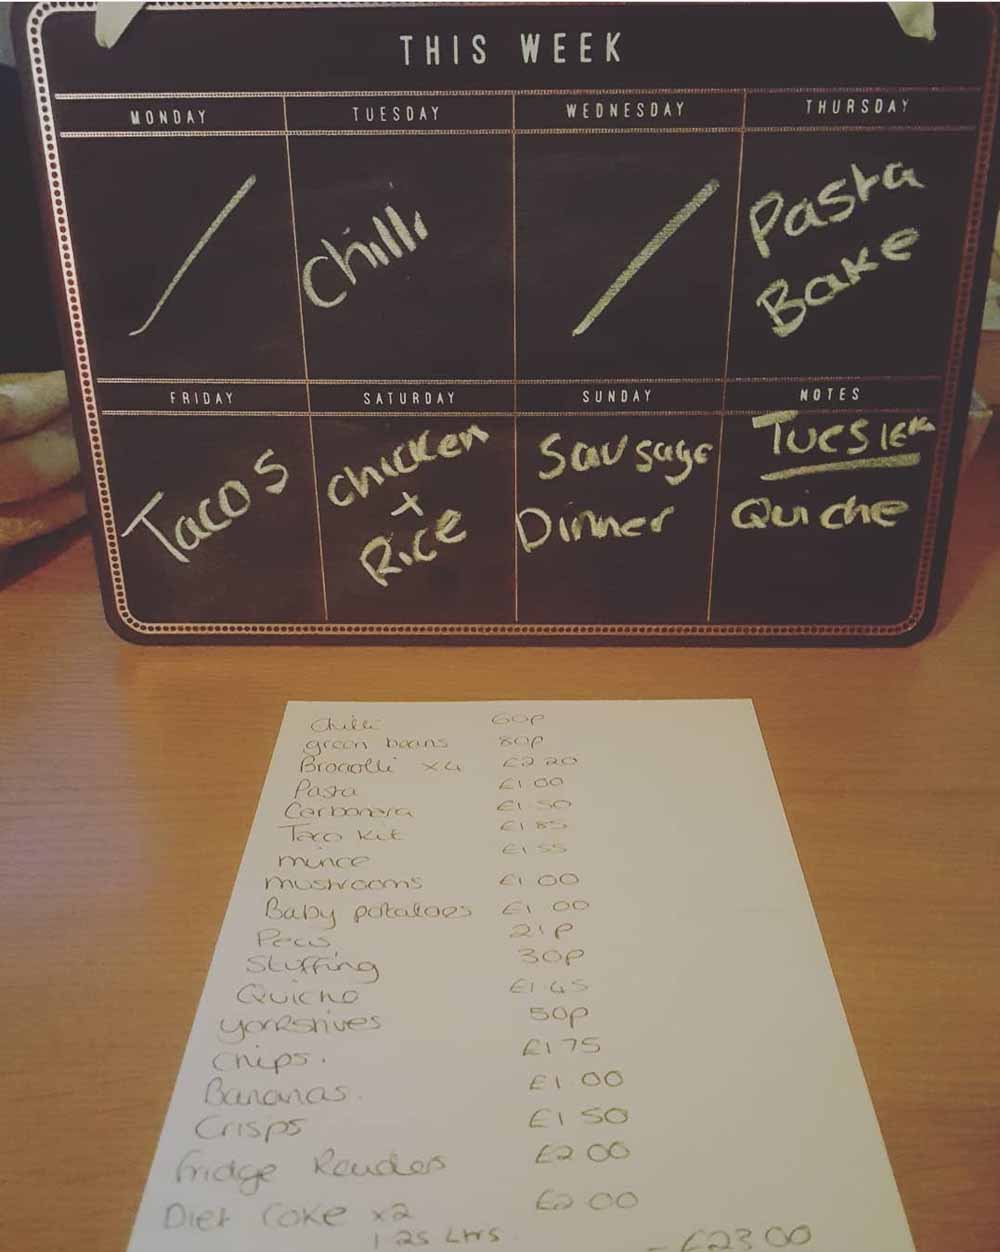 THIS WEEK
MONDAY TUESDAY WEDNESDAY THURSDAY
Chilli
Pasta
Bake
FRIDAY SATURDAY SUNDAY NOTES
Tacos
Chicken
+
Rice
Sausage
Dinner
Quiche
Chilli 60p
green beans 80p
Brocolli x4 £2.20
Pasta £1.00
Carbonara £1.50
Taco Kit £1.85
mince £1.55
mushrooms £1.00
Baby potatoes £1.00
Peas 21p
Stuffing 30p
Quiche £1.45
yorkshires 50p
Chips. £1.75
Bananas. £1.00
Crisps £1.50
Fridge Raiders £2.00
Diet Coke x2 £2.00
1.25 Ltrs. - £23.00